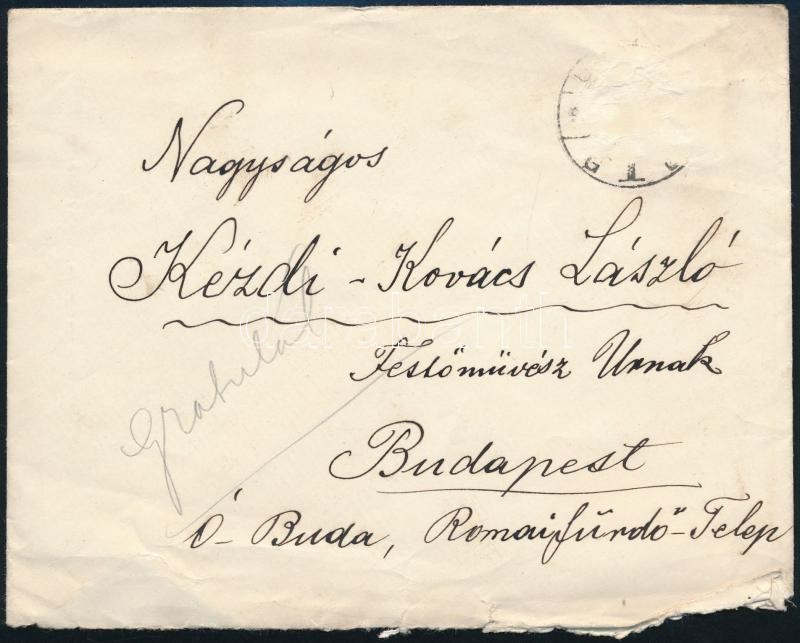 Nagyságos
Kézdi - Kovács László
Festőművész Urnak
Gratulál
Budapest
Ó- Buda, Romaifürdő-Telep
darabanth